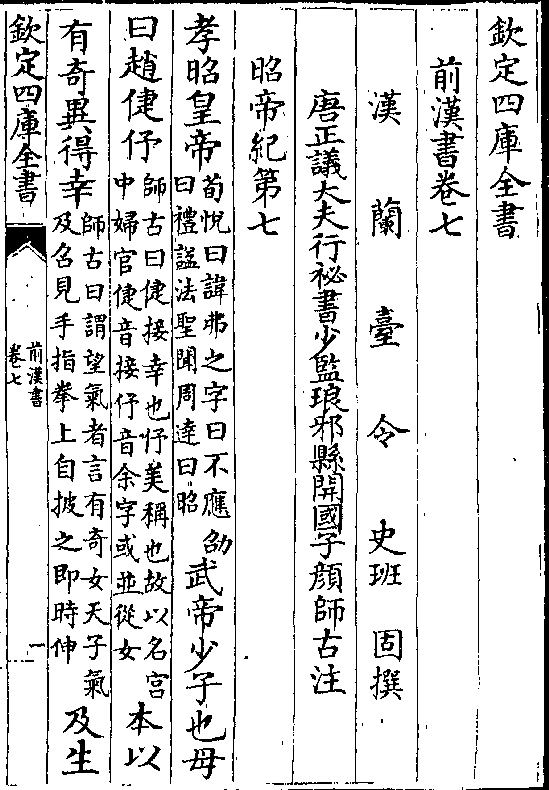 欽定四庫全書
前漢書卷七
漢蘭臺令史班固撰
唐正議大夫行祕書少監琅邪縣開國子顏師古注
昭帝紀第七
孝昭皇帝荀悅曰諱弗之字曰不應劭曰禮諡法聖聞周達曰昭武帝少子也母
曰趙倢伃師古曰倢接幸也伃美稱也故以名宮中婦官倢音接伃音余字或並從女本以
有奇異得幸師古曰謂望氣者言有奇女天子氣及召見手指拳上自披之即時伸及生
欽定四庫全書
前漢書
卷七
一